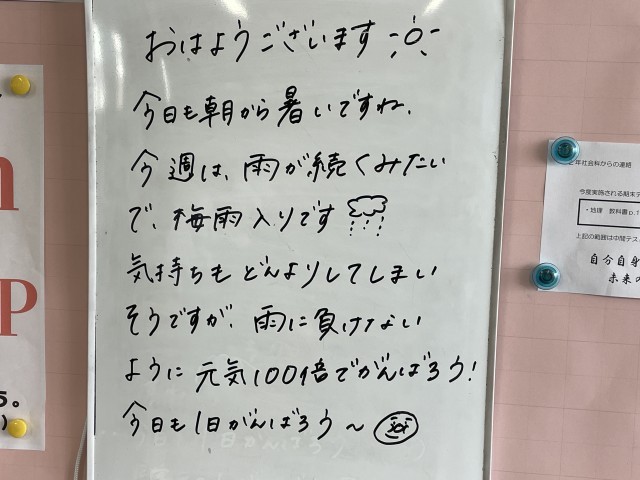 おはようございます
今日も朝から暑いですね.
今週は、雨が続くみたい
で、梅雨入りです
気持ちもどんよりしてしまい
そうですが、雨に負けない
ように元気100倍でがんばろう!
今日も1日がんばろう〜
n
P
年社会科からの連絡
今度実施される期末テ
・地理 教科書p.1
上記の範囲は中間テス
自分自身
未来の